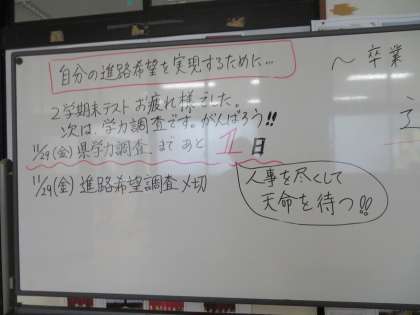 自分の進路希望を実現するために…
2学期末テストお疲れ様でした。
次は、学力調査です。がんばろう!!
11/29(金)県学力調査まであと 日
11/29(金)進路希望調査〆切
人事を尽くして
天命を待つ!!
～卒業